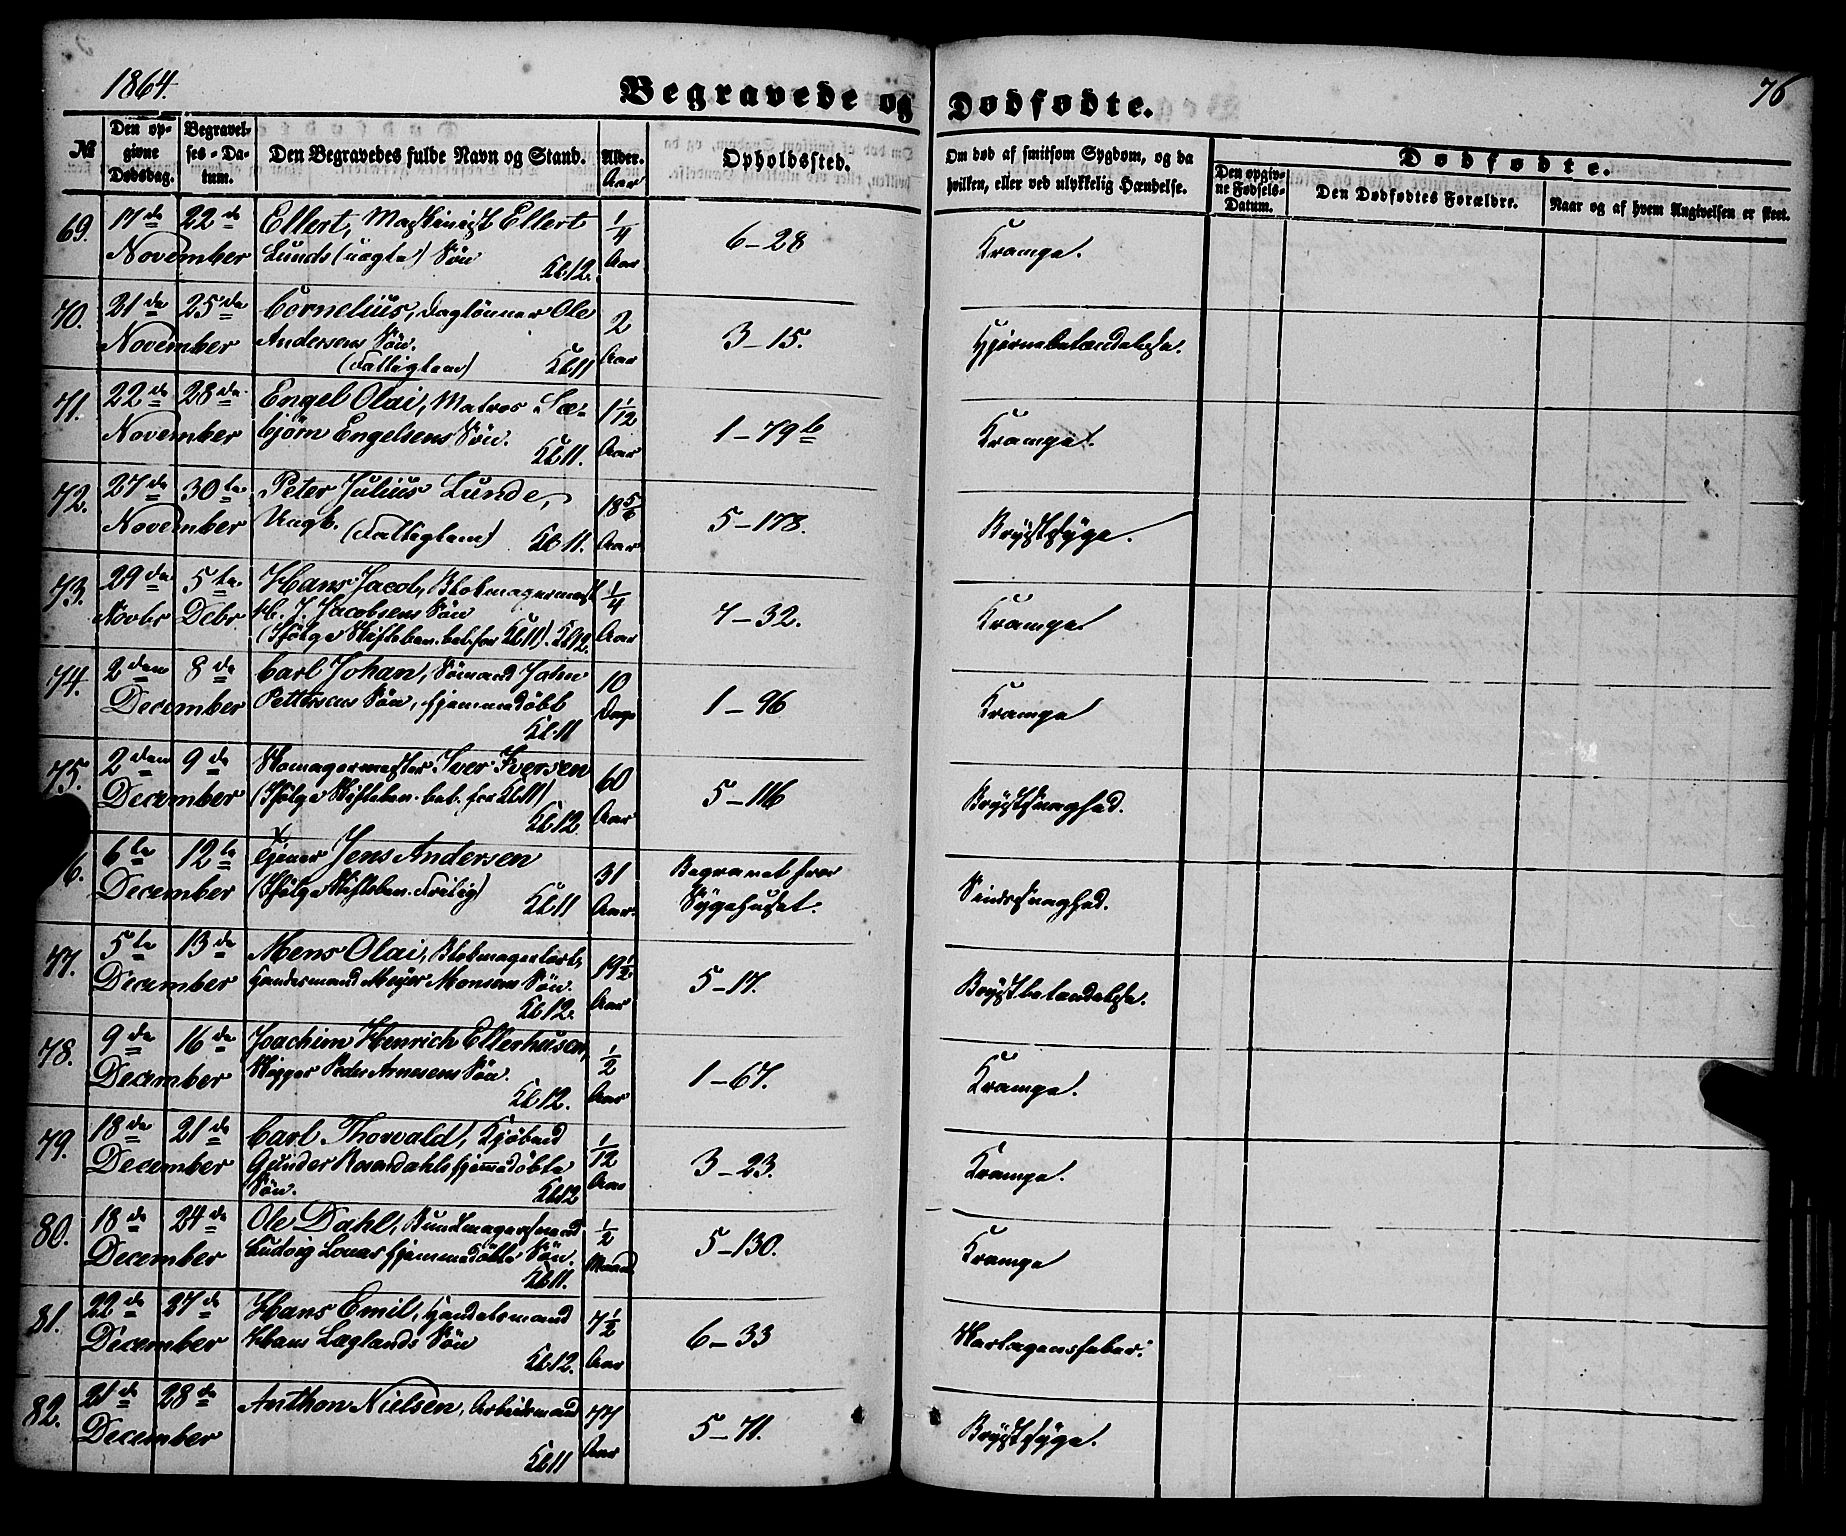 1864.
Begravede og Dødfødte.
76
№
Den opgivne Dødsdag.
Begravelses-Datum.
Den Begravedes fulde Navn og Stand.
Alder. Aar
Opholdssted.
Om død af smitsom Sygdom, og da hvilken, eller ved ulykkelig Hændelse.
Dødfødte.
Den opgivne Fødsels-Datum.
Den Dødfødtes Forældre.
Naar og af hvem Angivelsen er skeet.
69. 17de 22de Ellert, Maskinist Ellert 1/4 6-28 Krampe.
November Lunds (uægte) Søn Kl. 12. Aar
70. 21de 25de Cornelius, Daglønner Ole 2 3-15. Hjernebetændelse.
November Andersens Søn. Aar
(Fattiglem) Kl 11
71. 22de 28de Engel Olai, Matros Sæ- 1 1/12 1-79b Krampe.
November bjørn Engelsens Søn. Kl 11. Aar
72. 27de 30te Peter Julius Lunde, 18 5/6 5-178. Brystsyge.
November Ungk. (Fattiglem) Kl 11. Aar
73. 29de 5te Hans Jacob, Blokmagermest 1/4 7-32. Krampe.
Novbr Debr H. J. Jacobsens Søn Aar
(Ifølge Stiftsbev. bet. for Kl 11). Kl 12.
74. 2den 8de Carl Johan, Sømand John 10 1-96 Krampe
December Pettersens Søn, hjemmedøbt Dage
Kl. 11
75. 2den 9de Skomagermester Iver Iversen 60 5-116 Brystsvaghed.
December (Ifølge Stiftsbev. bet. for Kl 11) Aar
Kl 12
6te 12te Tjener Jens Andersen 31 Begravet fra Sindssvaghed.
December (Ifølge Stiftsbev. Fritig) Kl 11 Aar. Sygehuset.
77. 5te 13de Mens Olai, Blokmagerlært, 19 1/2 5-17. Brystbetændelse.
December Handelsmand Meyer Monsens Søn. Kl 12. Aar
78. 9de 16de Joachim Henrich Ellerhusen, 1/2 1-67. Krampe.
December Skipper Peder Arnesens Søn. Kl. 12. Aar
79. 18de 21de Carl Thorvald, Kjøbmd 1/12 3-23. Krampe.
December Gunder Rosendahls hjemmedøbte Aar
Søn. Kl 12
80. 18de 24de Ole Dahl, Buntmagersvend 1/2 5-130. Krampe
December Ludvig Lonas hjemmedøbte Søn. Maaned
Kl 11.
81. 22de 27de Hans Emil, Handelsmand 7 1/2 6-33 Skarlagensfeber.
December Hans Laglands Søn Kl 12. Aar
82. 21de 28de Anthon Nielsen, Arbeidsmand 77 5-71. Brystsyge.
December Kl 11 Aar